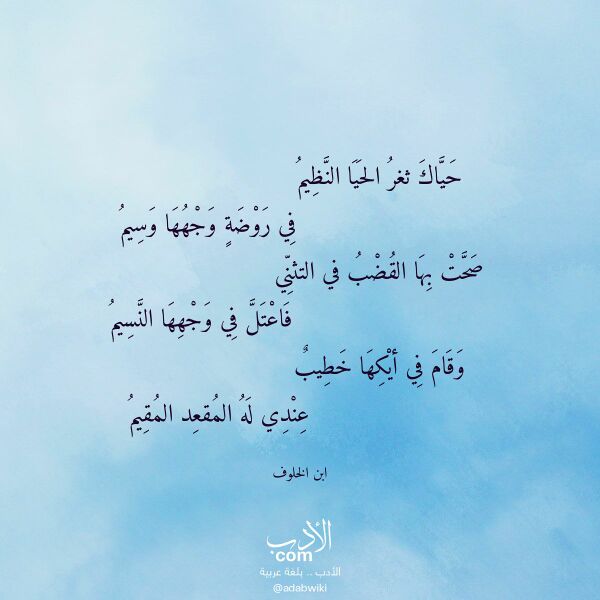 حَيَّاكَ ثغرُ الحَيَا النَّظِيمُ
فِي رَوْضَةٍ وَجْهُهَا وَسِيمُ
صَحَّتْ بِهَا القُضْبُ في التثنِّي
فَاعْتَلَّ فِي وَجْهِهَا النَّسِيمُ
وَقَامَ فِي أيْكِهَا خَطِيبٌ
عِنْدِي لَهُ المُقعِد المُقِيمُ
ابن الخلوف
الأدب
com
الأدب .. بلغة عربية
@adabwiki